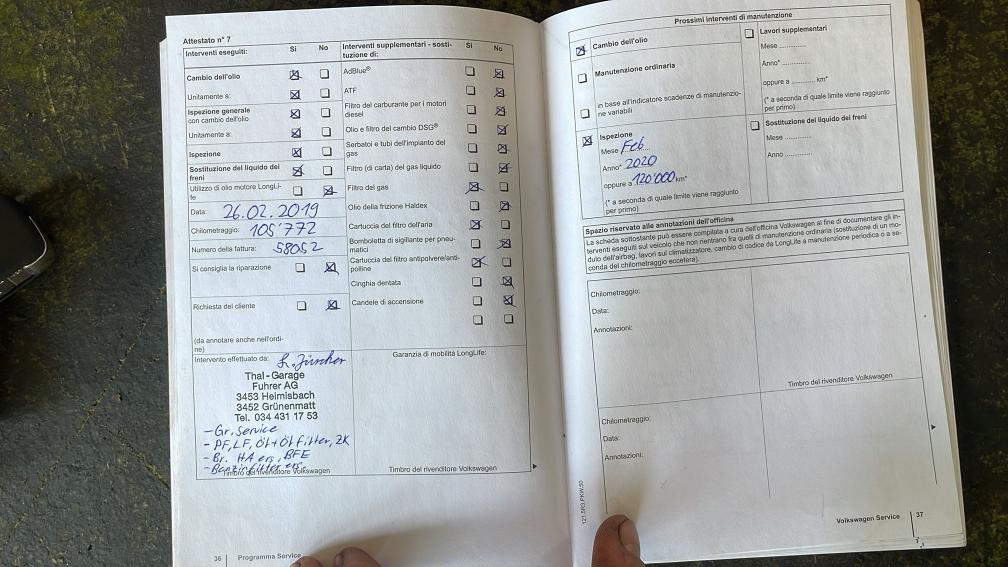 Attestato n° 7
Interventi eseguiti: Sì No
Cambio dell'olio
Unitamente a:
Ispezione generale
con cambio dell'olio
Unitamente a:
Ispezione
Sostituzione del liquido dei
freni
Utilizzo di olio motore LongLi-
fe
Data: 26.02.2019
Chilometraggio: 105'772
Numero della fattura: 58052
Si consiglia la riparazione
Richiesta del cliente
(da annotare anche nell'ordi-
ne)
Intervento effettuato da: L. Zürcher
Thal-Garage
Fuhrer AG
3453 Heimisbach
3452 Grünenmatt
Tel. 034 431 17 53
- Gr. Service
- PF, LF, Öl + Ölfilter, ZK
- Br. HA ers, BFE
- Benzinfilter ers.
Timbro del rivenditore Volkswagen
Interventi supplementari - sosti-
tuzione di: Sì No
AdBlue®
ATF
Filtro del carburante per i motori
diesel
Olio e filtro del cambio DSG®
Serbatoi e tubi dell'impianto del
gas
Filtro (di carta) del gas liquido
Filtro del gas
Olio della frizione Haldex
Cartuccia del filtro dell'aria
Bomboletta di sigillante per pneu-
matici
Cartuccia del filtro antipolvere/anti-
polline
Cinghia dentata
Candele di accensione
Garanzia di mobilità LongLife:
Timbro del rivenditore Volkswagen
36 Programma Service
Prossimi interventi di manutenzione
Cambio dell'olio
Manutenzione ordinaria
in base all'indicatore scadenze di manutenzio-
ne variabili
Ispezione
Mese Feb
Anno* 2020
oppure a 120'000 km*
(* a seconda di quale limite viene raggiunto
per primo)
Lavori supplementari
Mese ............
Anno* ............
oppure a ............ km*
(* a seconda di quale limite viene raggiunto
per primo)
Sostituzione del liquido dei freni
Mese ............
Anno ............
Spazio riservato alle annotazioni dell'officina
La scheda sottostante può essere compilata a cura dell'officina Volkswagen al fine di documentare gli in-
terventi eseguiti sul veicolo che non rientrano fra quelli di manutenzione ordinaria (sostituzione di un mo-
dulo dell'airbag, lavori sul climatizzatore, cambio di codice da LongLife a manutenzione periodica o a se-
conda del chilometraggio eccetera).
Chilometraggio:
Data:
Annotazioni:
Timbro del rivenditore Volkswagen
Chilometraggio:
Data:
Annotazioni:
Volkswagen Service 37